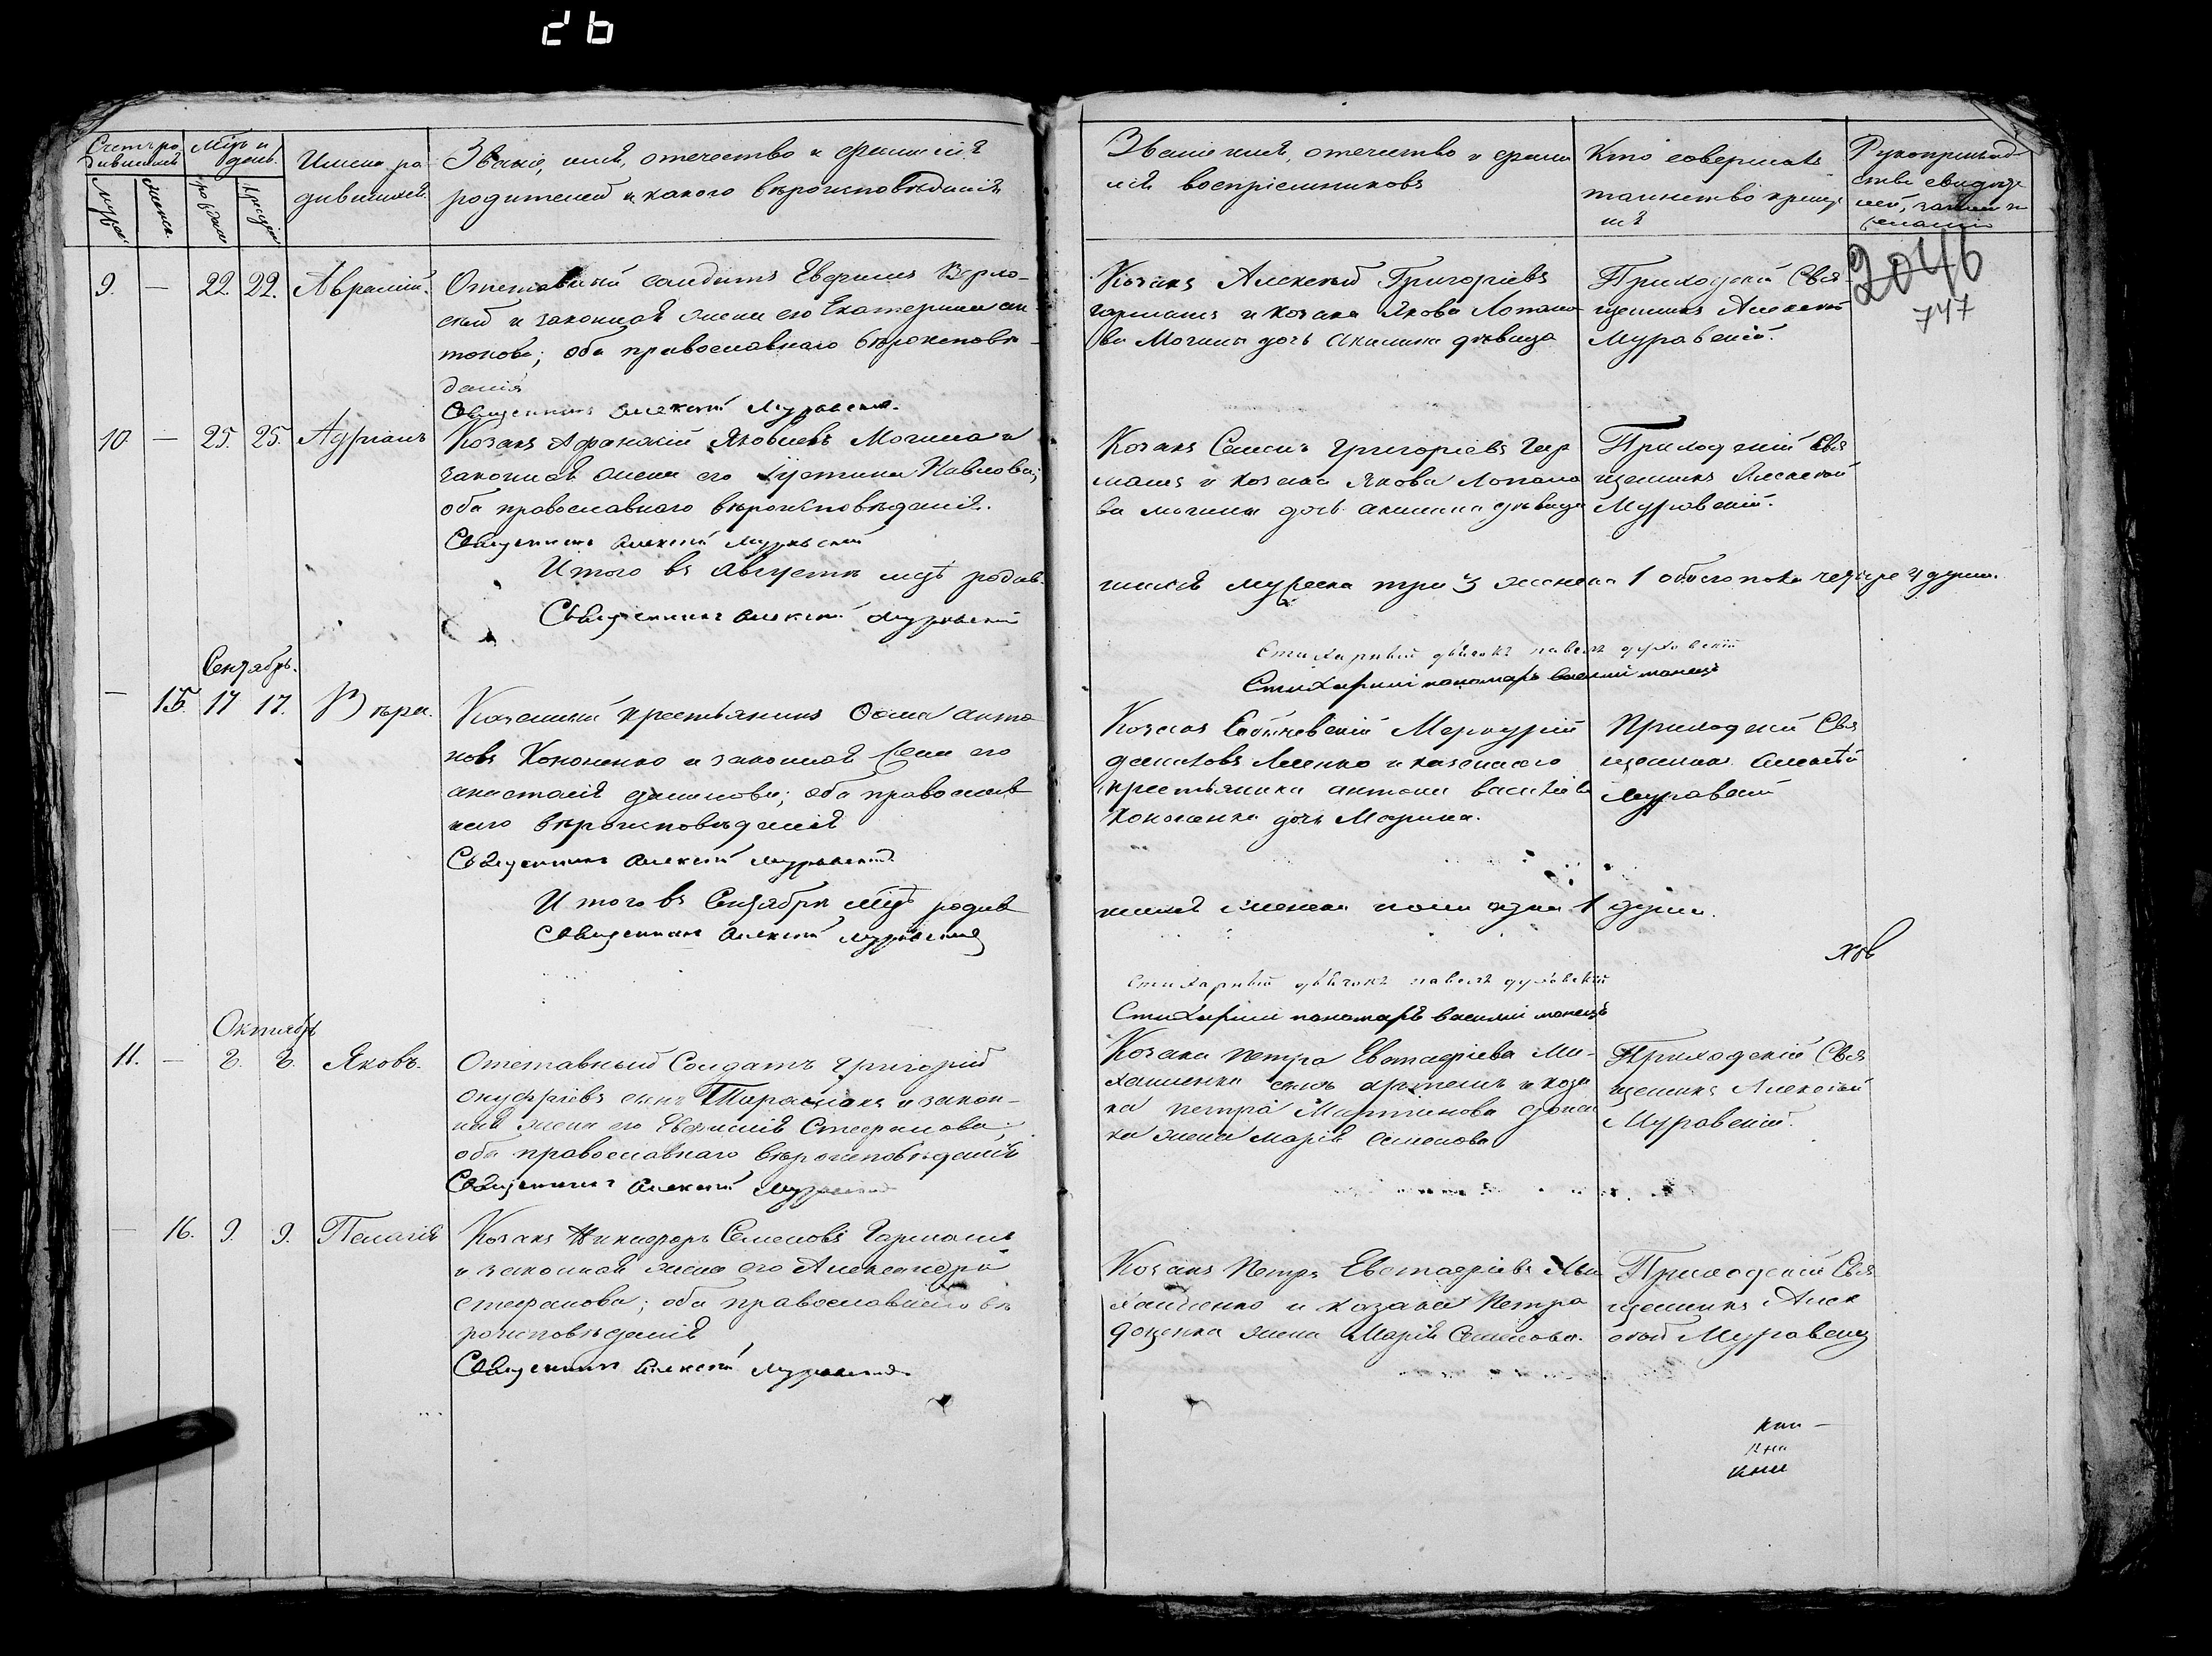 26
Счетъ родившихся
Мцъ и день.
Имена ро
дившихся.
Званіе, имя, отечество и фамилія
родителей и какого вѣроисповѣданія
Званіе имя, отечество и фами
лія воспріемниковъ
Кто совершалъ
таинство креще
нія
Мужеск.
Женск.
2046
747
9. — 22. 22. Аврамій.
Отставный солдатъ
и законная жена его Екатерина Ан
тонова; оба православнаго вѣроисповѣ
данія
Священникъ Алексѣй Муравскій.
Козакъ Алексѣй Григоріевъ
Гармашъ и козака Якова Потапо
ва Могилы дочь Акилина дѣвица
Приходскій Свя
щенникъ Алексѣй
Муравскій.
10. — 25. 25. Адріанъ
Козакъ Афанасій Яковлевъ Могила и
законная жена его Іустина Павлова;
оба православнаго вѣроисповѣданія.
Священникъ Алексѣй Муравскій
Козакъ Семенъ Григоріевъ Гар
машъ и козака Якова Потапо
ва Могилы дочь Акилина дѣвица
Приходскій Свя
щенникъ Алексѣй
Муравскій.
Итого въ Августѣ мцѣ родив-
шихся мужеска три 3 женска 1 обоего пола четыре 4 души.
Священникъ Алексѣй Муравскій
Стихарный дьячокъ Павелъ
Стихарний пономаръ Василий
Сентябрь.
— 15. 17 17. Вѣра.
Казенный крестьянинъ Ѳома Анто
новъ Кононенко и законная жена его
Анастасія Данилова; оба православ
наго вѣроисповѣданія
Священникъ Алексѣй Муравскій.
Козакъ Меркурій
и казеннаго
крестьянина Антона Василіева
Кононенка дочь Марина.
Приходскій Свя
щенникъ Алексѣй
Муравскій
Итого въ Сентябрѣ мцѣ родив
шихся женска пола одна 1 душа.
Священникъ Алексѣй Муравскій
Стихарный дьячокъ Павелъ
Стихарний пономаръ Василий
Октябрь
11. — 2. 2. Яковъ.
Отставный Солдатъ Григорій
Онуфріевъ сынъ и закон-
ная жена его Евфимія Стефанова;
оба православнаго вѣроисповѣданія
Священникъ Алексѣй Муравскій
Козака Петра Евстафіева Ми-
хайленка сынъ Артемъ и коза
ка Петра Мартинова Доцен
ка жена Марія Семенова
Приходскій Свя
щенникъ Алексѣй
Муравскій.
— 16. 9. 9. Пелагія
Козакъ Никифоръ Семеновъ Гармашъ
и законная жена его Александра
Стефанова; оба православнаго вѣ
роисповѣданія
Священникъ Алексѣй Муравскій
Козакъ Петръ Евстафіевъ Ми
хайленко и козака Петра
Доценка жена Марія Семенова.
Приходскій Свя
щенникъ Алек
сѣй Муравскій